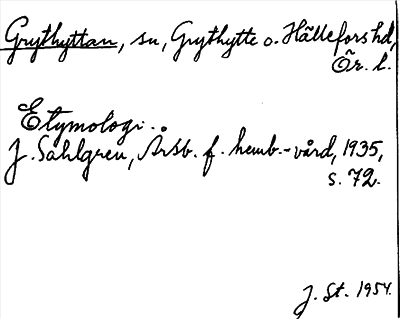 Grythyttan, sn, Grythytte o. Hällefors hd,
Ör. l.
Etymologi.
J. Sahlgren, Årsb. f. hemb.-vård, 1935,
s. 72.
J. St. 1954.